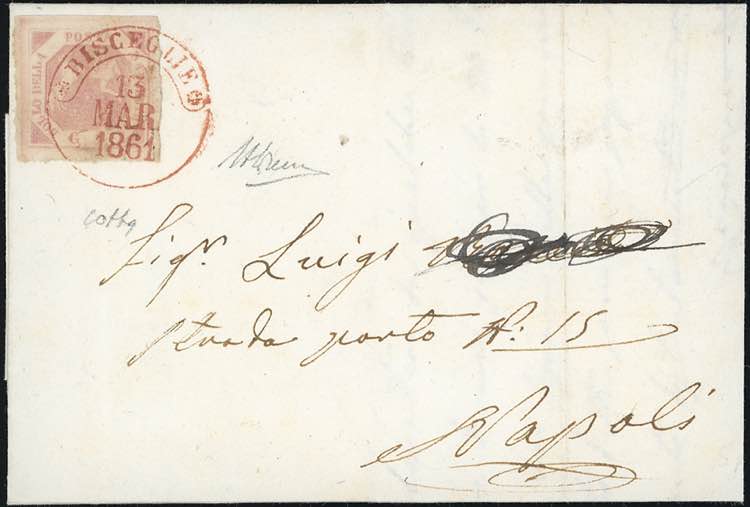 POS
BOLLO DELLA
BISCEGLIE
13
MAR
1861
Sigr. Luigi
Strada porto N: 15
Napoli